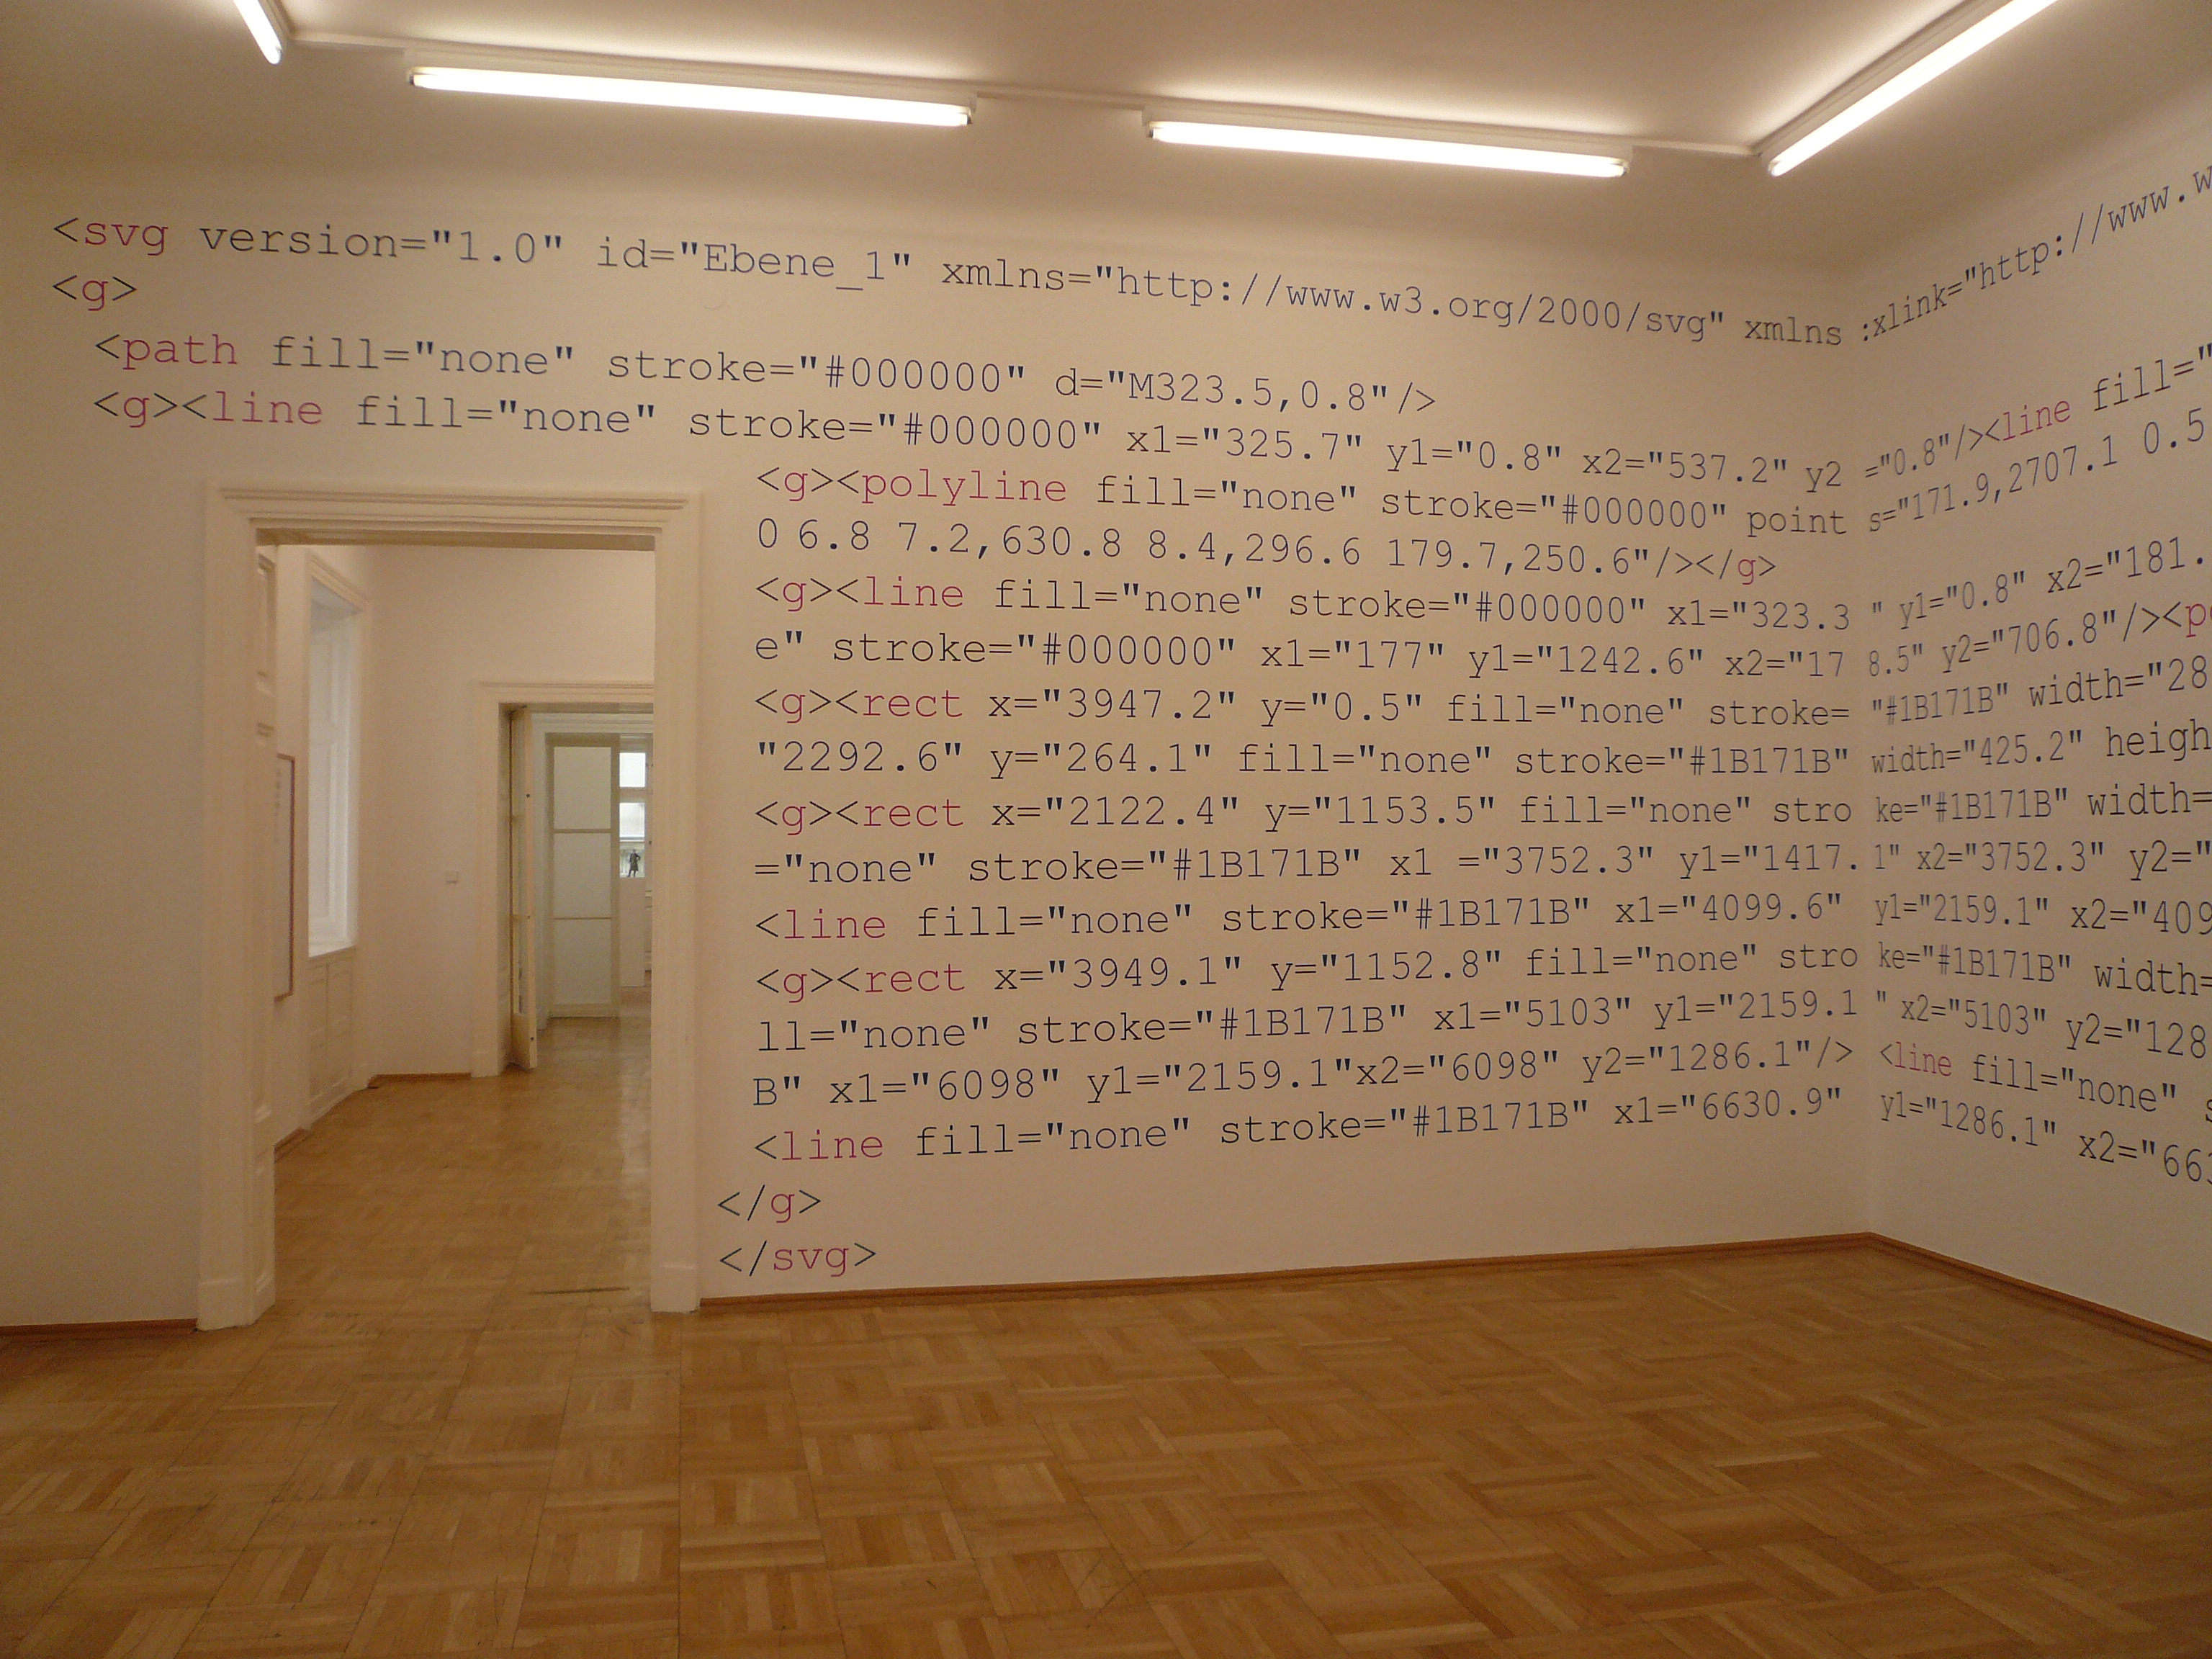 <svg version="1.0" id="Ebene_1" xmlns="http://www.w3.org/2000/svg" xmlns :xlink="http://www.w
<g>
<path fill="none" stroke="#000000" d="M323.5,0.8"/>
<g><line fill="none" stroke="#000000" x1="325.7" y1="0.8" x2="537.2" y2 ="0.8"/><line fill="
<g><polyline fill="none" stroke="#000000" point s="171.9,2707.1 0.5
0 6.8 7.2,630.8 8.4,296.6 179.7,250.6"/></g>
<g><line fill="none" stroke="#000000" x1="323.3 " y1="0.8" x2="181.
e" stroke="#000000" x1="177" y1="1242.6" x2="17 8.5" y2="706.8"/><p
<g><rect x="3947.2" y="0.5" fill="none" stroke= "#1B171B" width="28
"2292.6" y="264.1" fill="none" stroke="#1B171B" width="425.2" heigh
<g><rect x="2122.4" y="1153.5" fill="none" stro ke="#1B171B" width=
="none" stroke="#1B171B" x1 ="3752.3" y1="1417. 1" x2="3752.3" y2="
<line fill="none" stroke="#1B171B" x1="4099.6" y1="2159.1" x2="409
<g><rect x="3949.1" y="1152.8" fill="none" stro ke="#1B171B" width=
ll="none" stroke="#1B171B" x1="5103" y1="2159.1 " x2="5103" y2="128
B" x1="6098" y1="2159.1"x2="6098" y2="1286.1"/> <line fill="none" s
<line fill="none" stroke="#1B171B" x1="6630.9" y1="1286.1" x2="663
</g>
</svg>